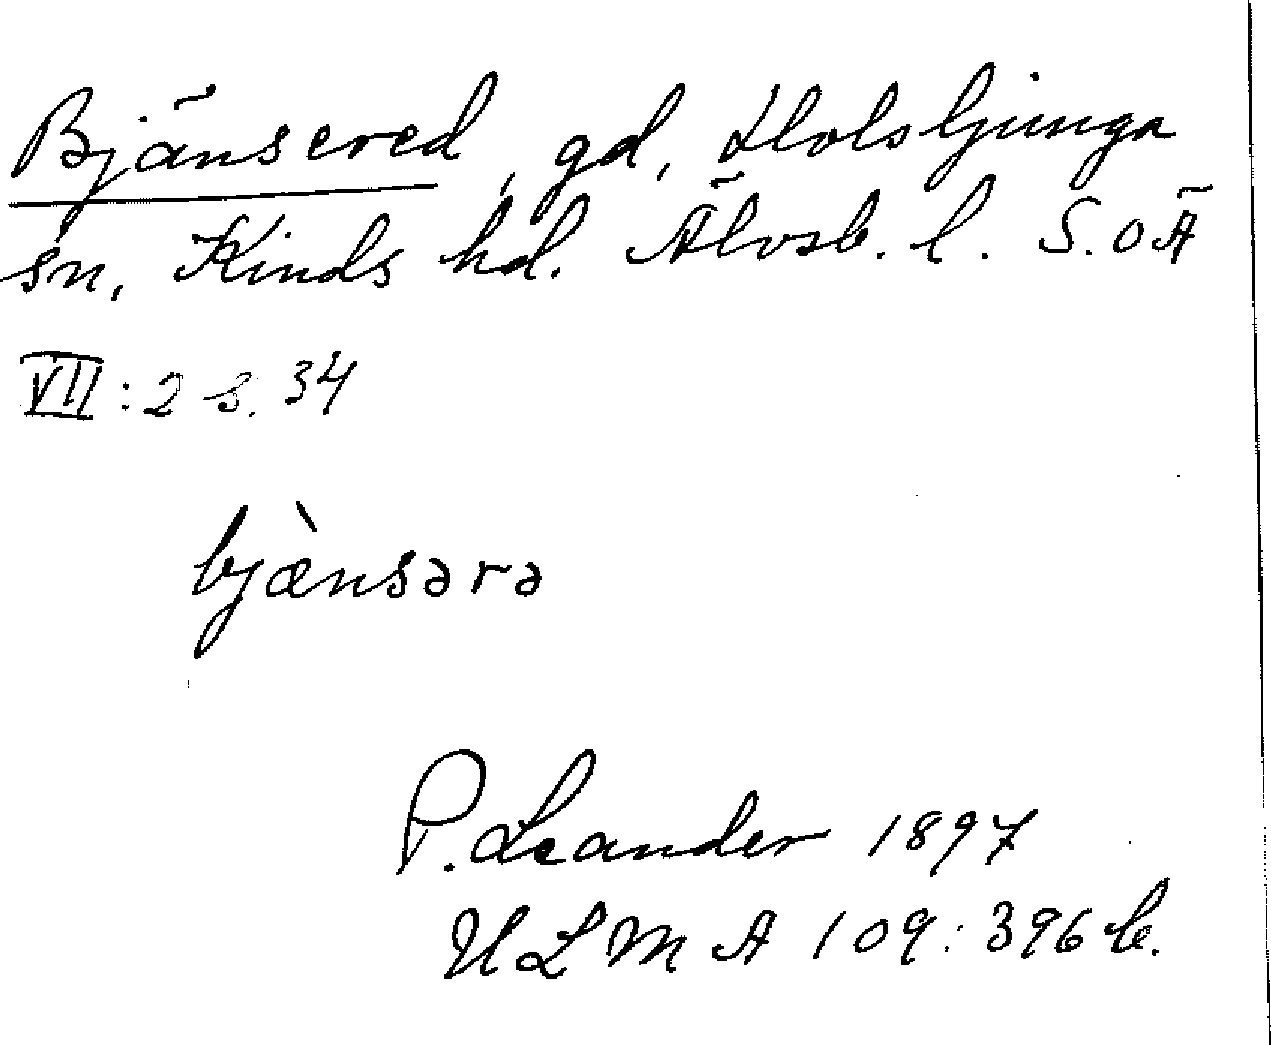 Bjänsered, gd, Holsljunga
sn, Kinds hd. Älvsb. l. S.O Ä
VII : 2 s. 34
bjæ̀nsərə
P. Leander 1897
ULMA 109:396 b.